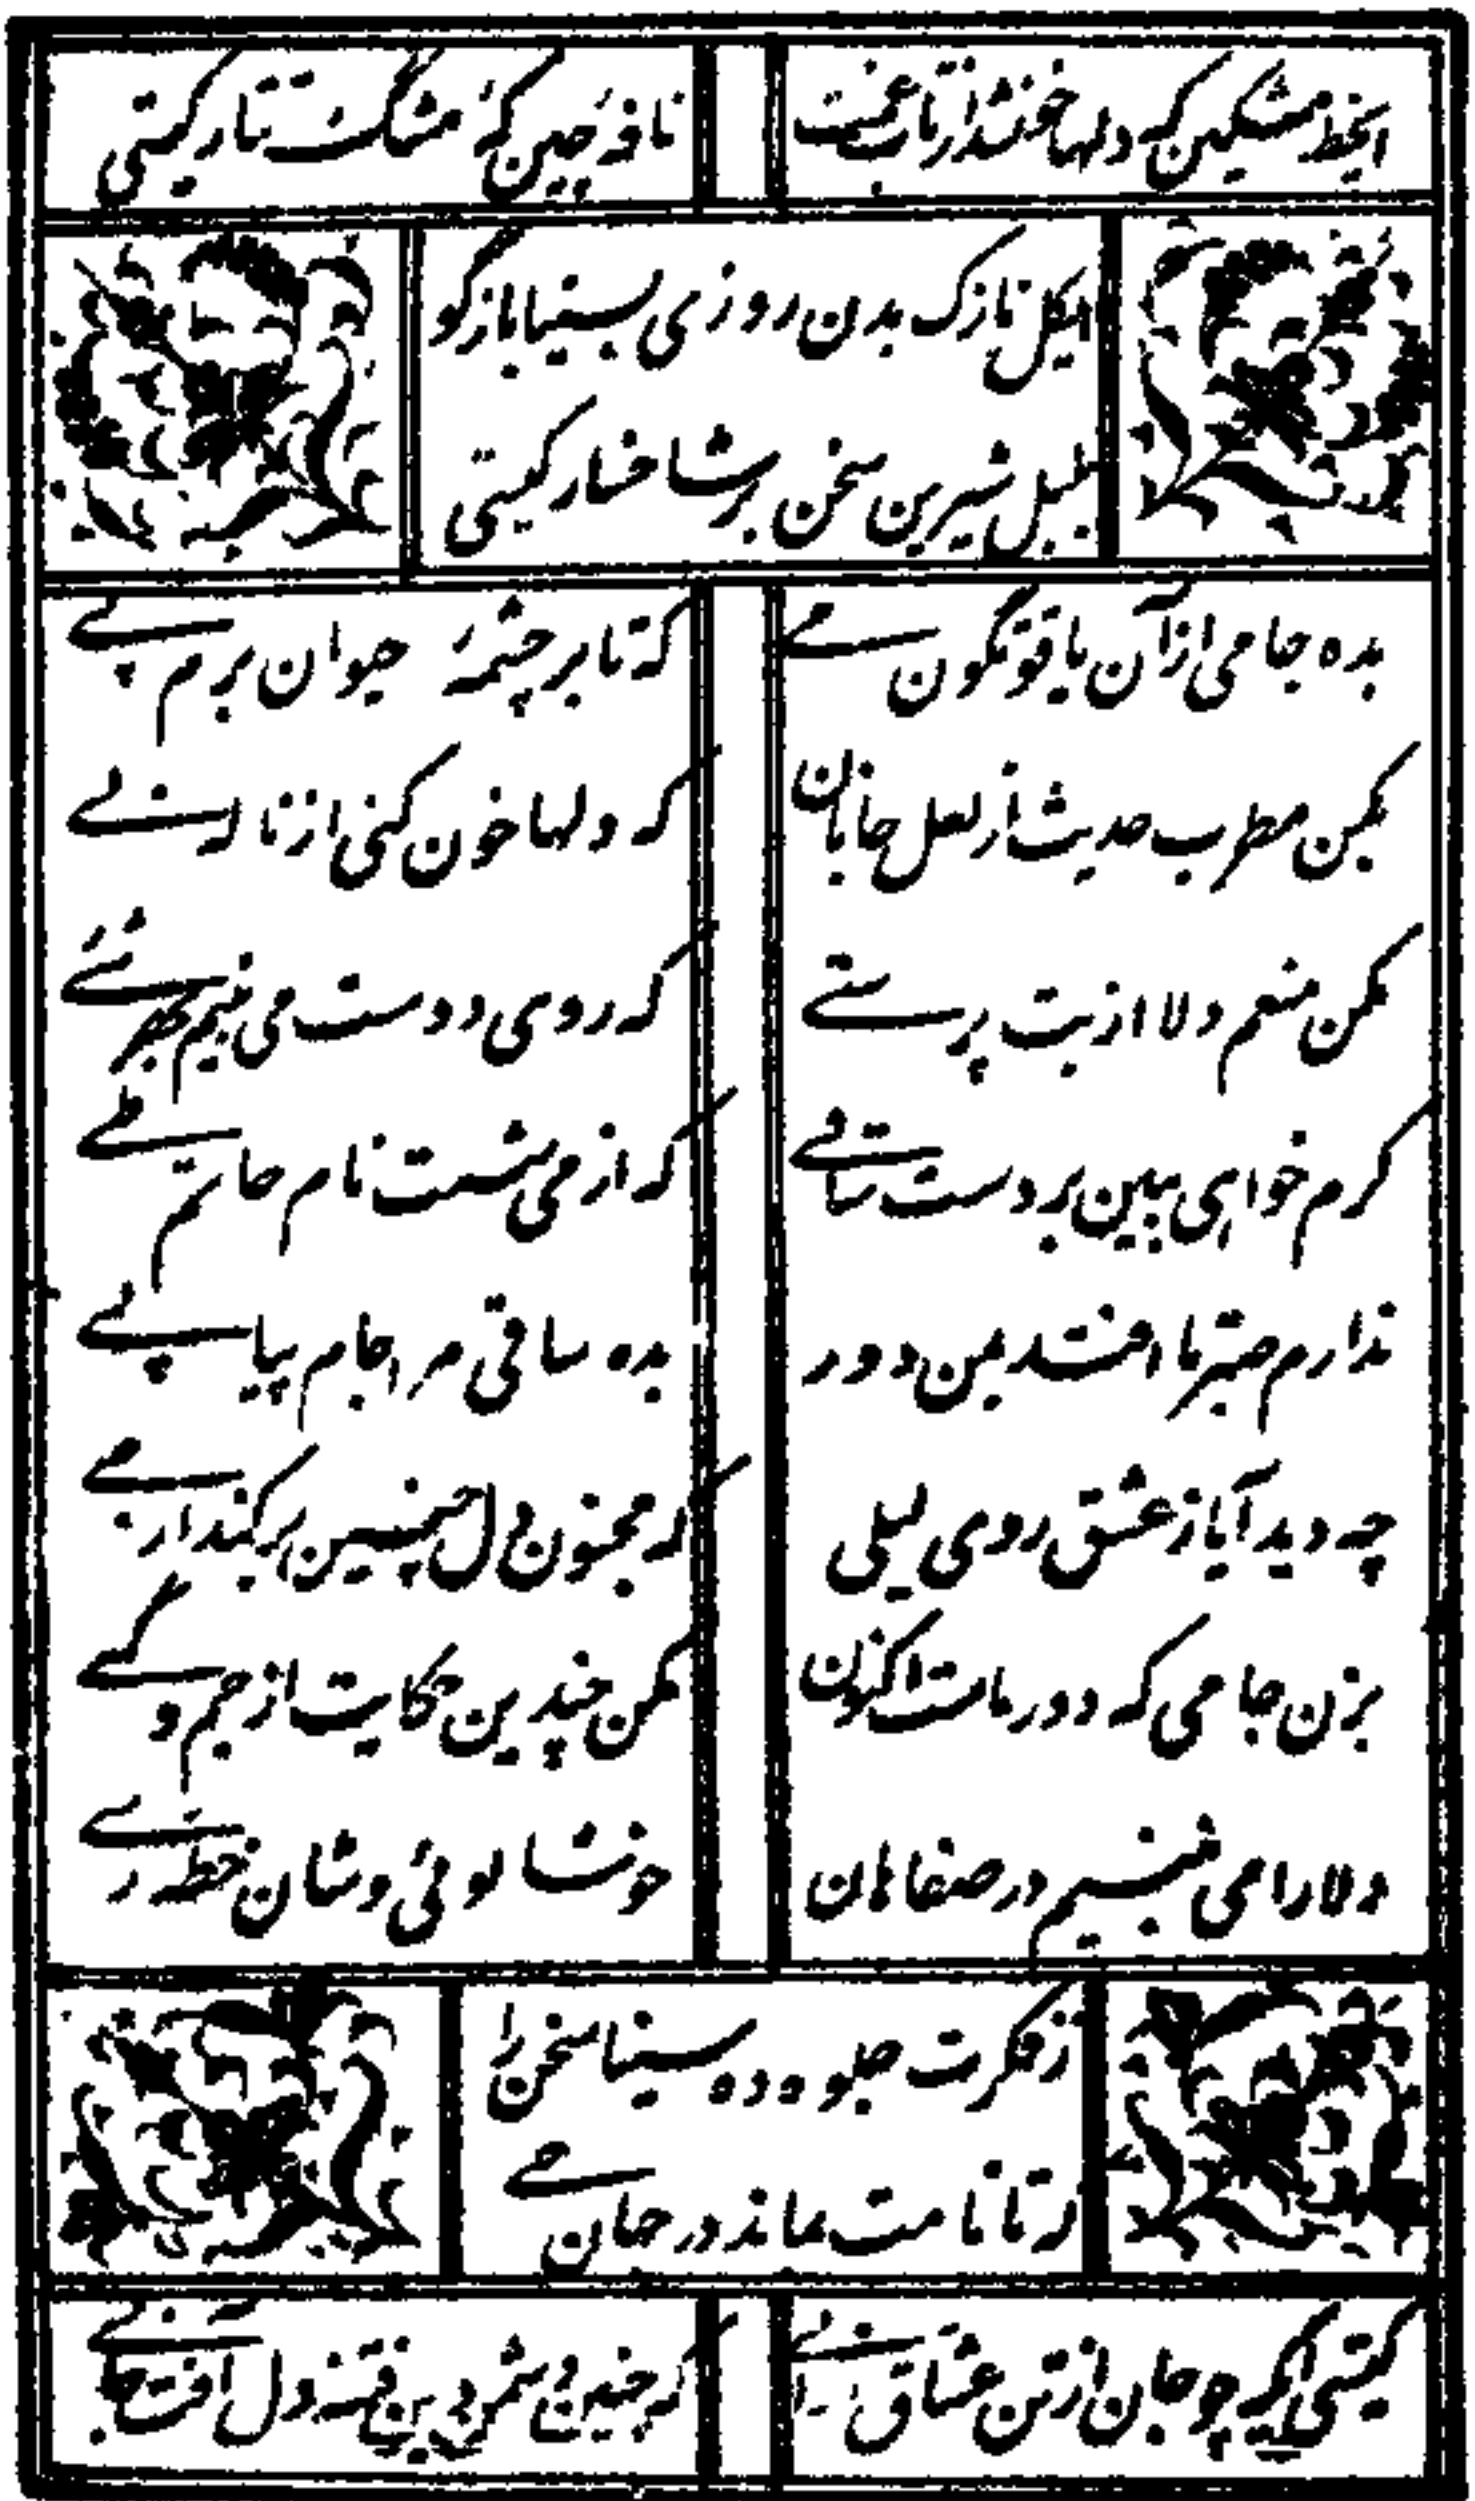 این خط مشکین که دلها خون شد از تاب غمت
نافه چین که مشکست تار کیستی
ای گل نازک بدن روزی بسینا بازگو
بلبل شیرین سخن بر شاخسار کیستی
بده جامی از آن یاقوتگون می
که تا بر چشمه حیوان برم پی
بکن مطرب حدیث از لعل جانان
که دلها خون کنی از ناله نی
مکن منعم دلا از بت پرستی
که روی دوست می بینم
کرم خواهی ببین بر دست ساقی
که از می نشست نام حاتم طی
ندارم صبر تا افتد بمن دور
بده ساقی مرا جام پیاپی
چه دید آیا ز عشق روی لیلی
که مجنون دل چنین برکند از حی
بزن جامی که دور ماست اکنون
مکن چندین حکایت از جم و کی
دلا را می در صفاهان
خوشا خطه ری
ز فکرت جلوه ده سینا سخن را
که تا نامت بماند در جهان حی
کیستی که چو جان از تن عشاق
که چنین عشوه دل